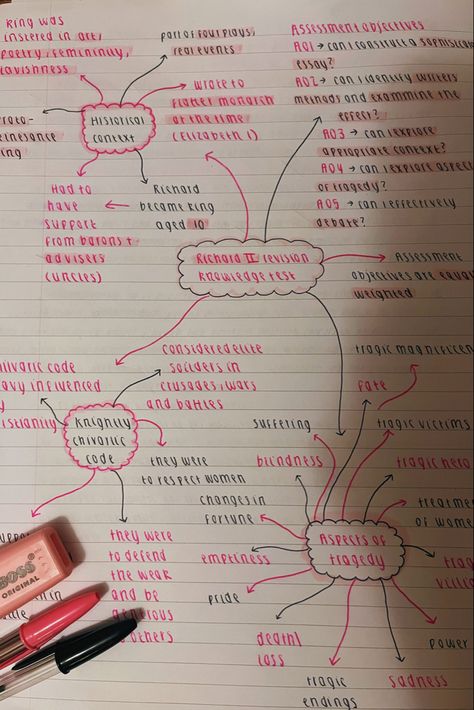 king was
interred in art,
poetry, femininity,
lavishness
part of four plays,
real events
wrote to
flatter monarch
at the time
(Elizabeth I)
Historical
context
Had to
have
support
from barons +
advisers
(uncles)
Richard
became king
aged 10
Assessment objectives
AO1 → can I construct a sophisticated
essay?
AO2 → can I identify writers
methods and examine the
effect?
AO3 → can I explore
appropriate context?
AO4 → can I explore aspects
of tragedy?
AO5 → can I effectively
debate?
Richard II revision
knowledge test
Assessment
objectives are equal
weighted
considered elite
soilders in
crusades, wars
and battles
chivalric code
heavy influenced
Knightly
chivalric
code
they were
to respect women
they were
to defend
the weak
and be
generous
to others
Aspects of
tragedy
tragic magnificen
fate
tragic victims
tragic hero
treatment
of women
power
sadness
tragic
endings
death/
loss
pride
emptiness
changes in
fortune
blindness
suffering
BOSS
ORIGINAL